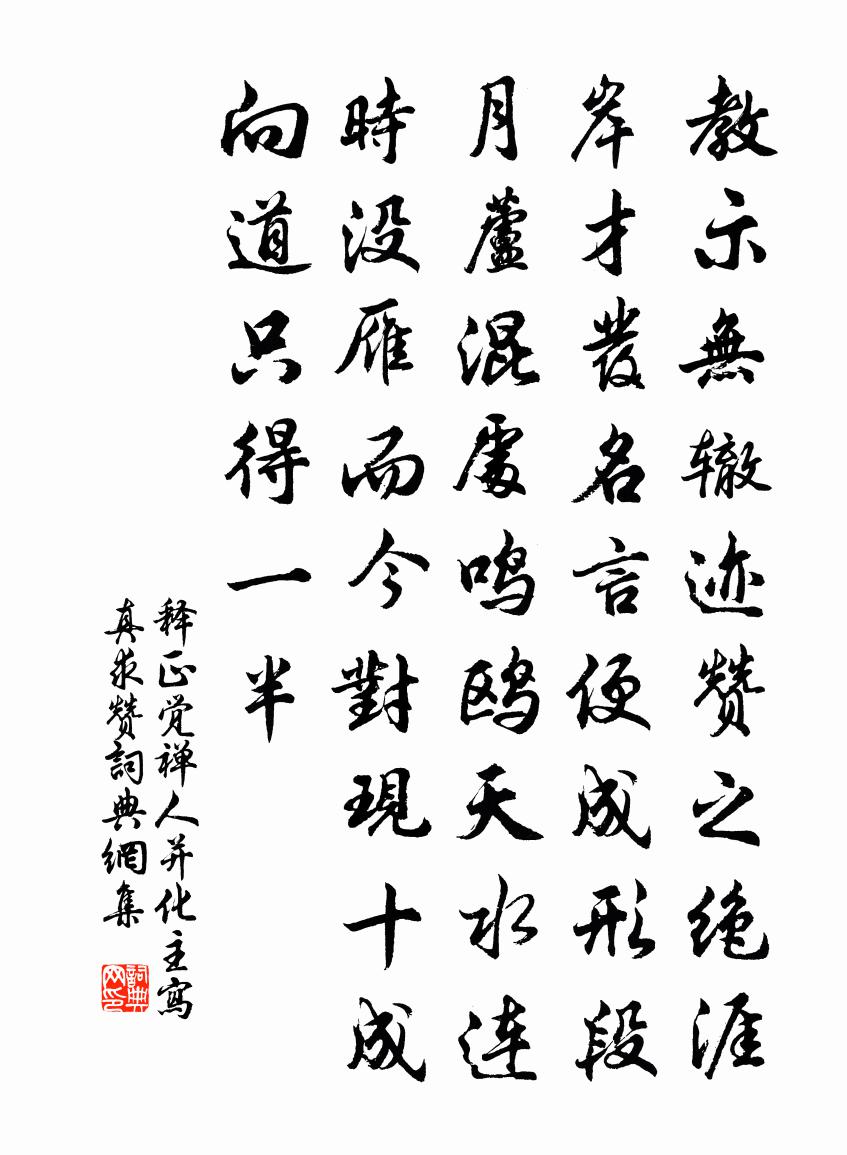 教示無辙迹赞之绝涯
岸才發名言便成形段
月蘆混處鸣鸥天水连
時没雁而今對現十成
向道只得一半
释正覚禅人并化主寫
真求赞詞典網集
詞典
网印